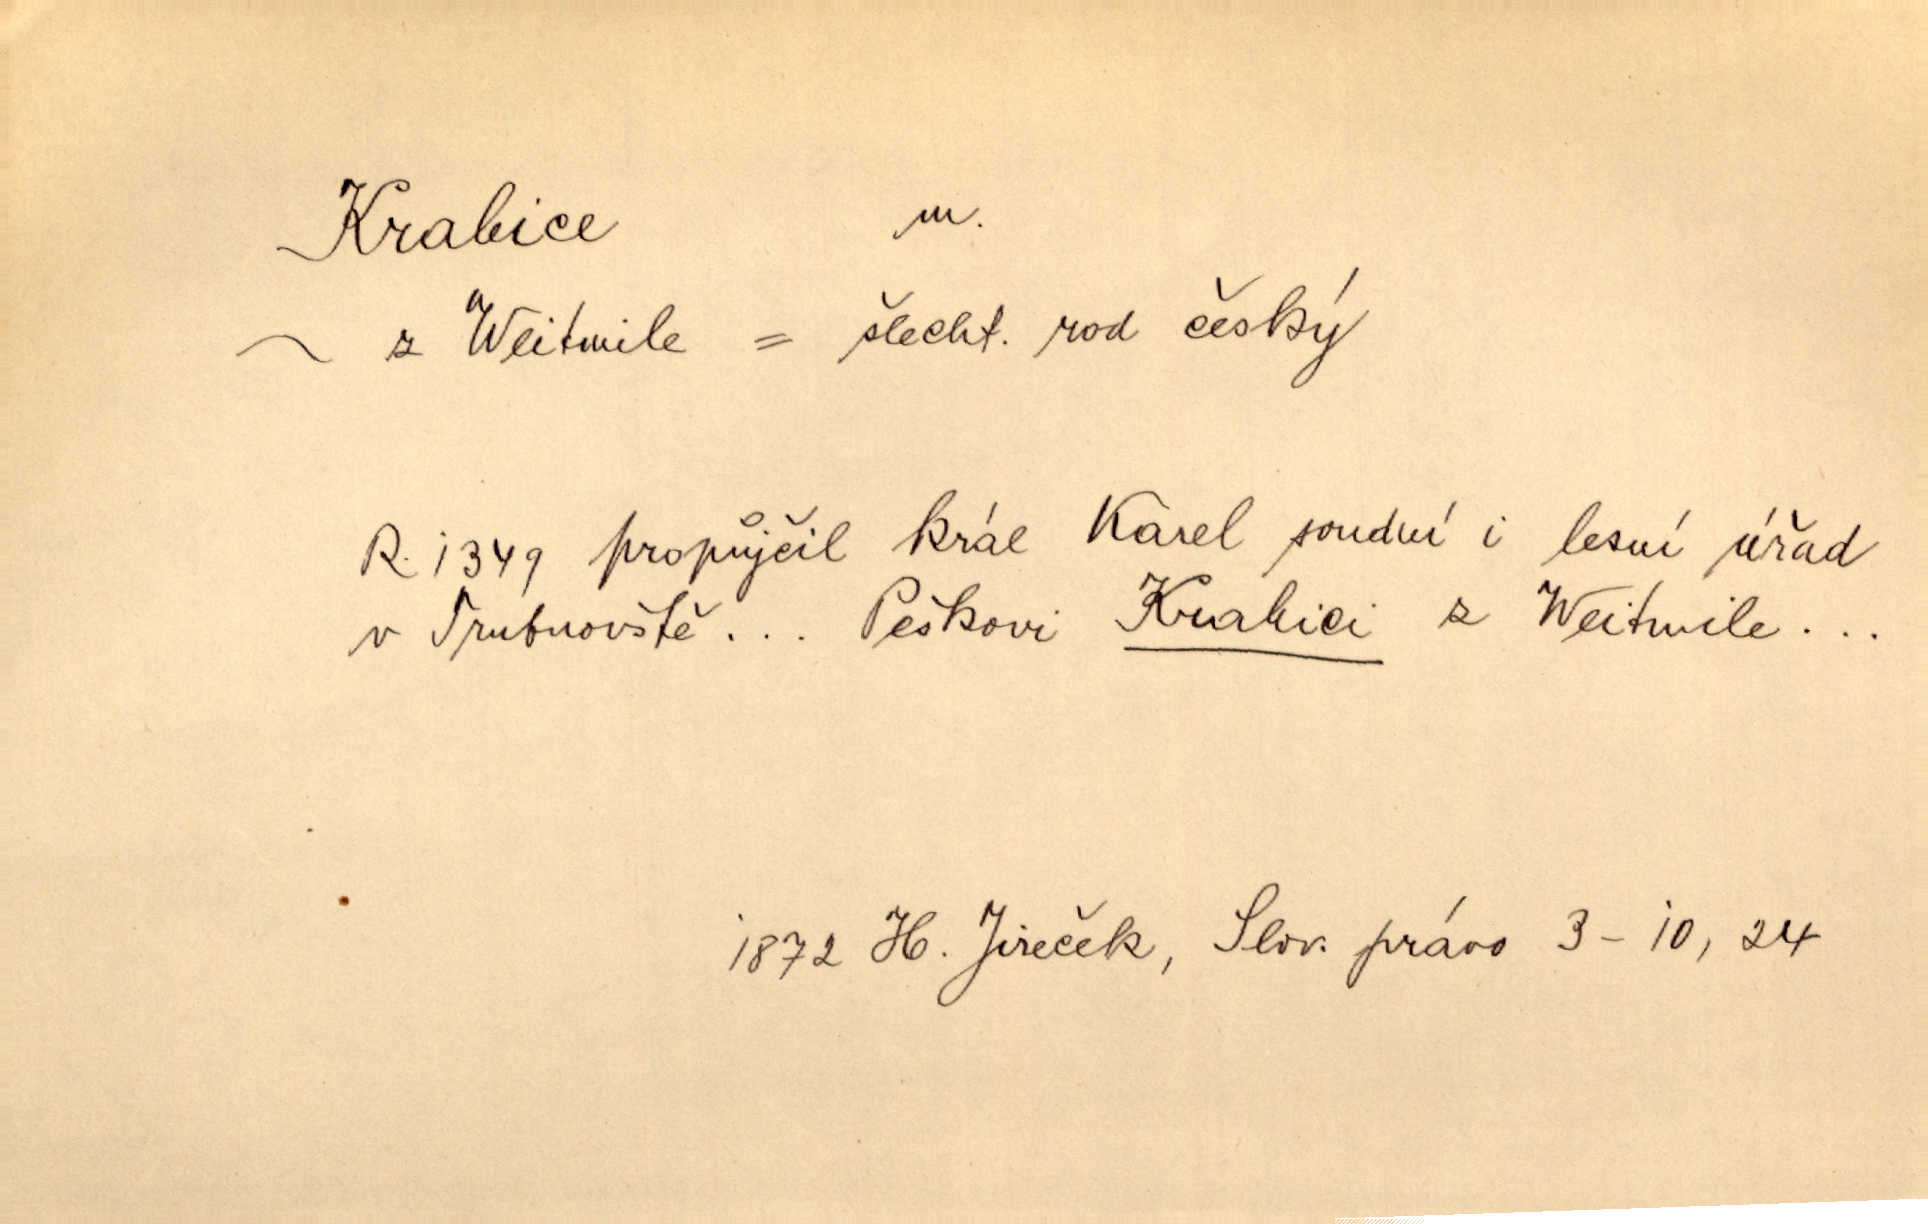 Krabice m.
~ z Weitmile = šlecht. rod český
R. 1349 propůjčil král Karel soudní i lesní úřad
v Trutnovště... Peškovi Krabici z Weitmile...
1872 H. Jireček, Slov. právo 3-10, 24